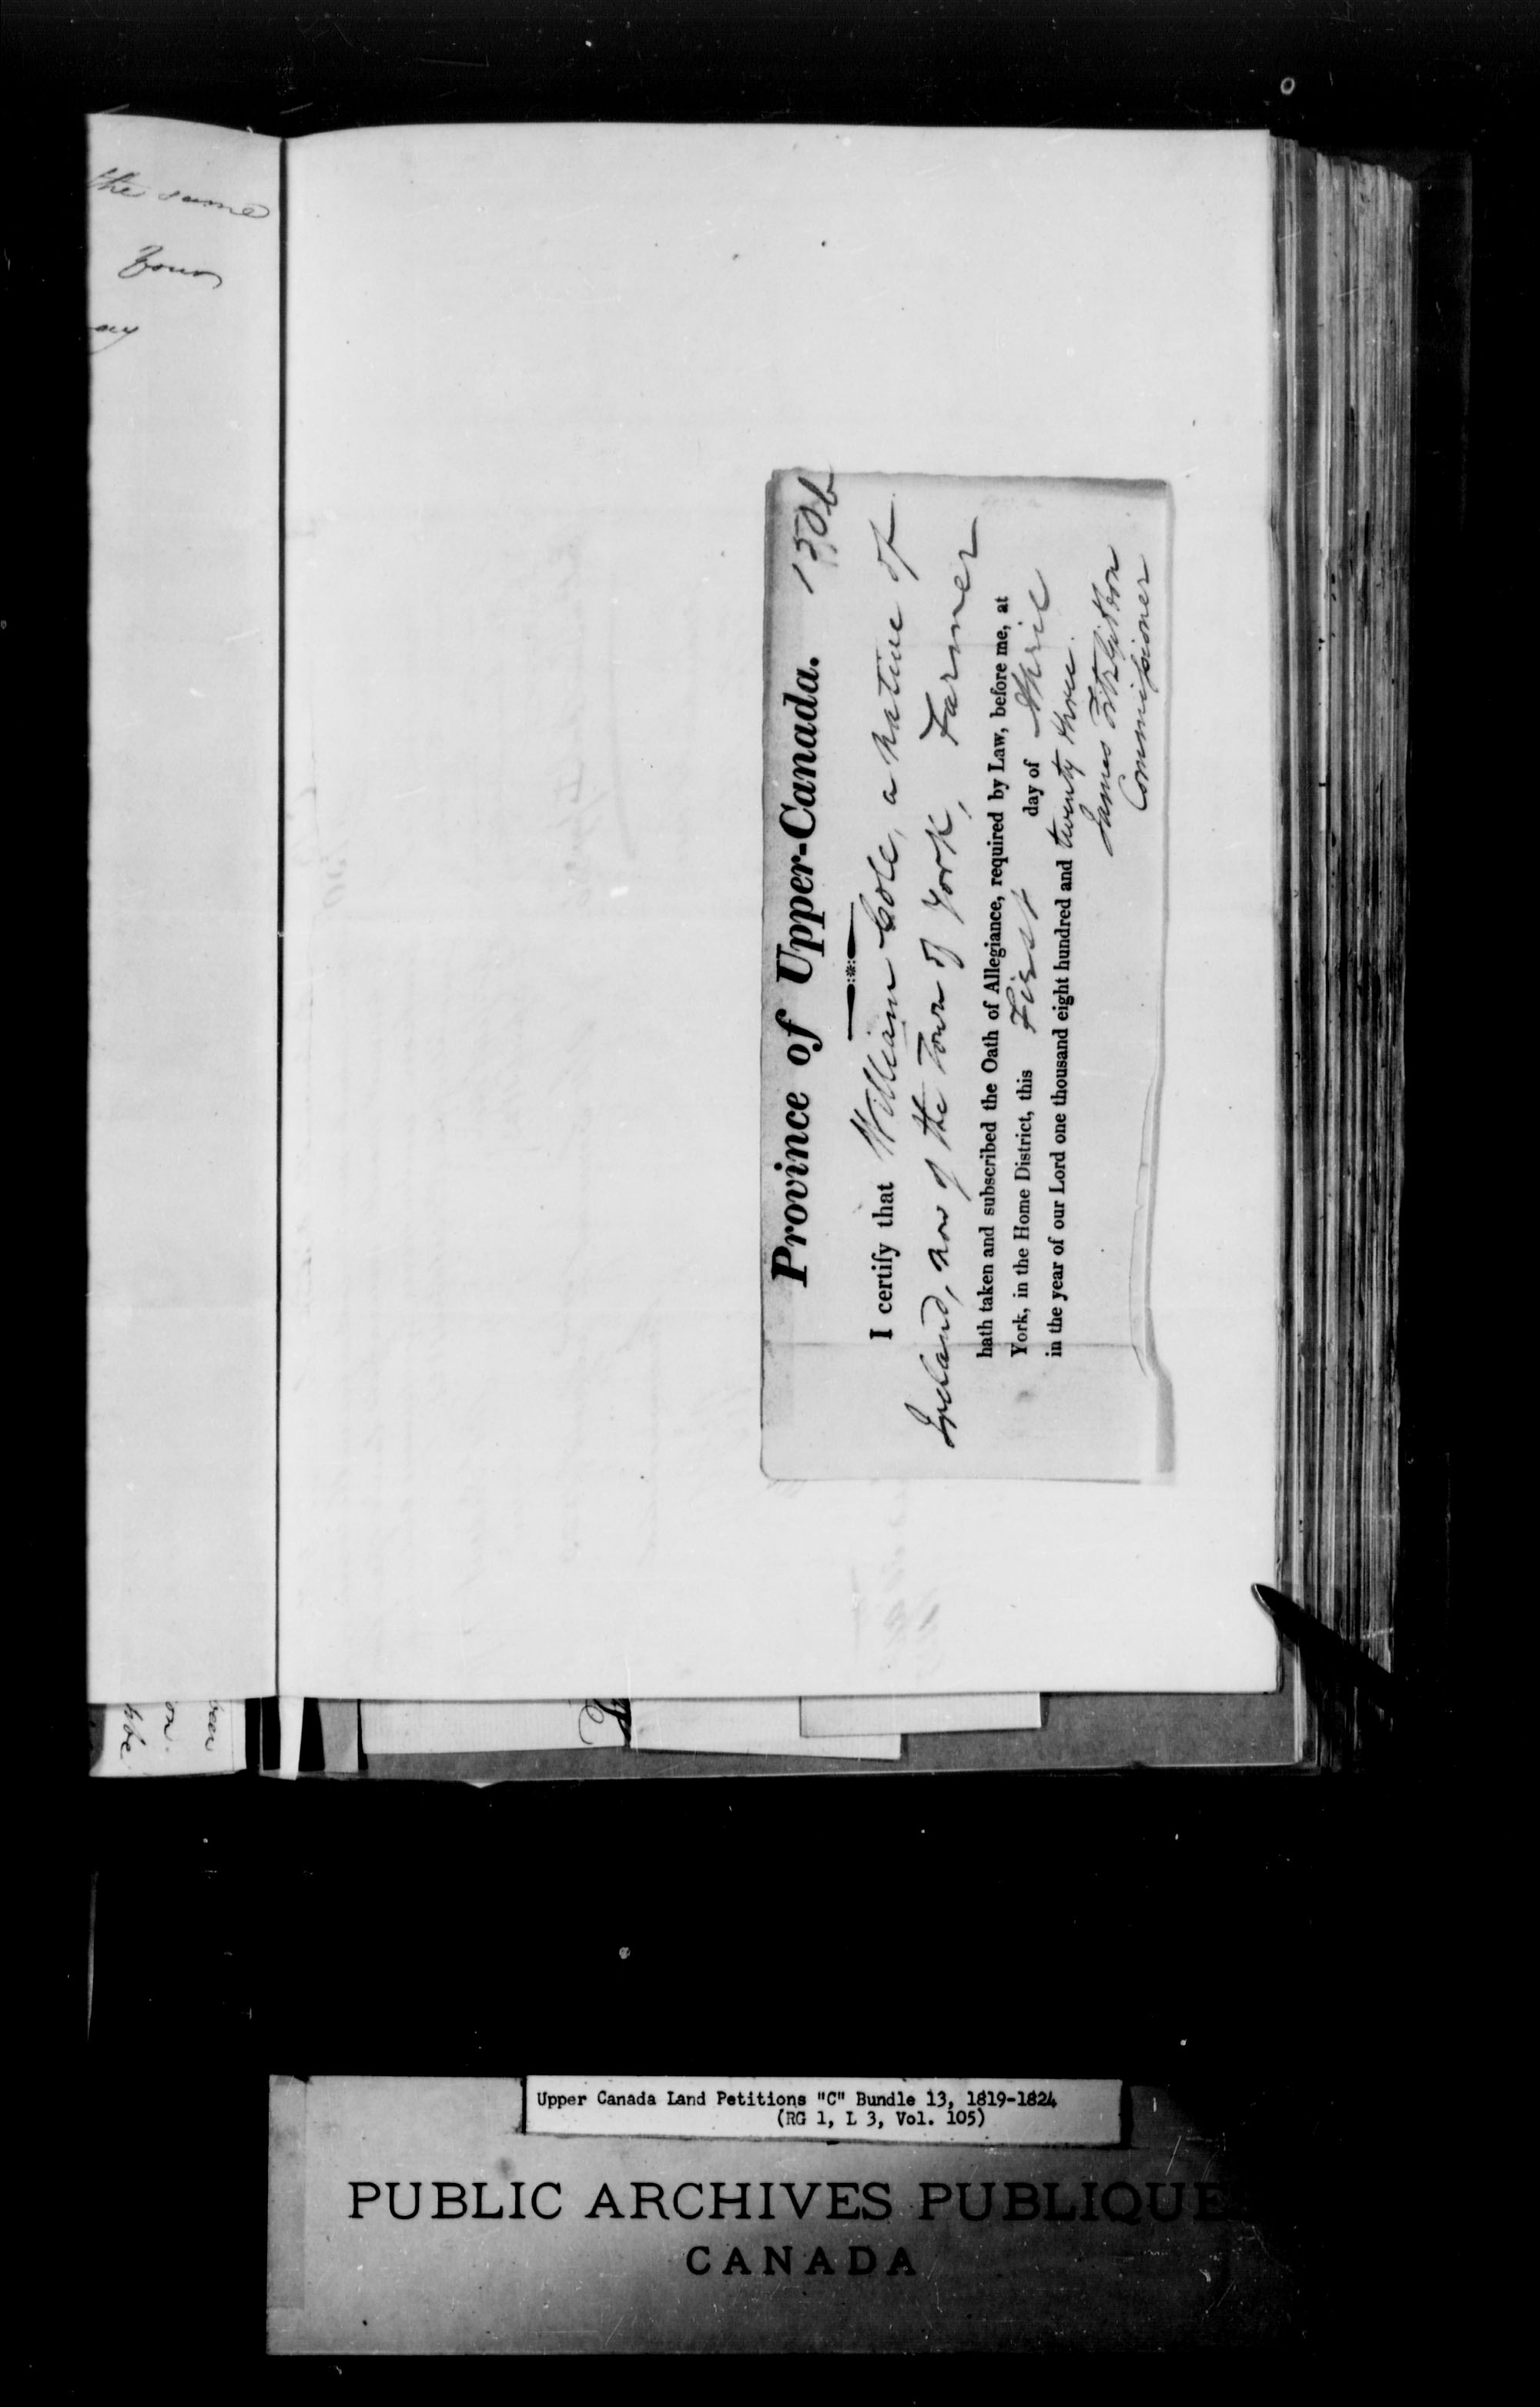 the same
Your
ay
Province of Upper-Canada. 150b
I certify that William Cole, a native of
Ireland, now of the Town of York, Farmer
hath taken and subscribed the Oath of Allegiance, required by Law, before me, at
York, in the Home District, this First day of April
in the year of our Lord one thousand eight hundred and twenty three.
James FitzGibbon
Commissioner
on.
Upper Canada Land Petitions "C" Bundle 13, 1819-1824
(RG 1, L 3, Vol. 105)
PUBLIC ARCHIVES PUBLIQUE
CANADA